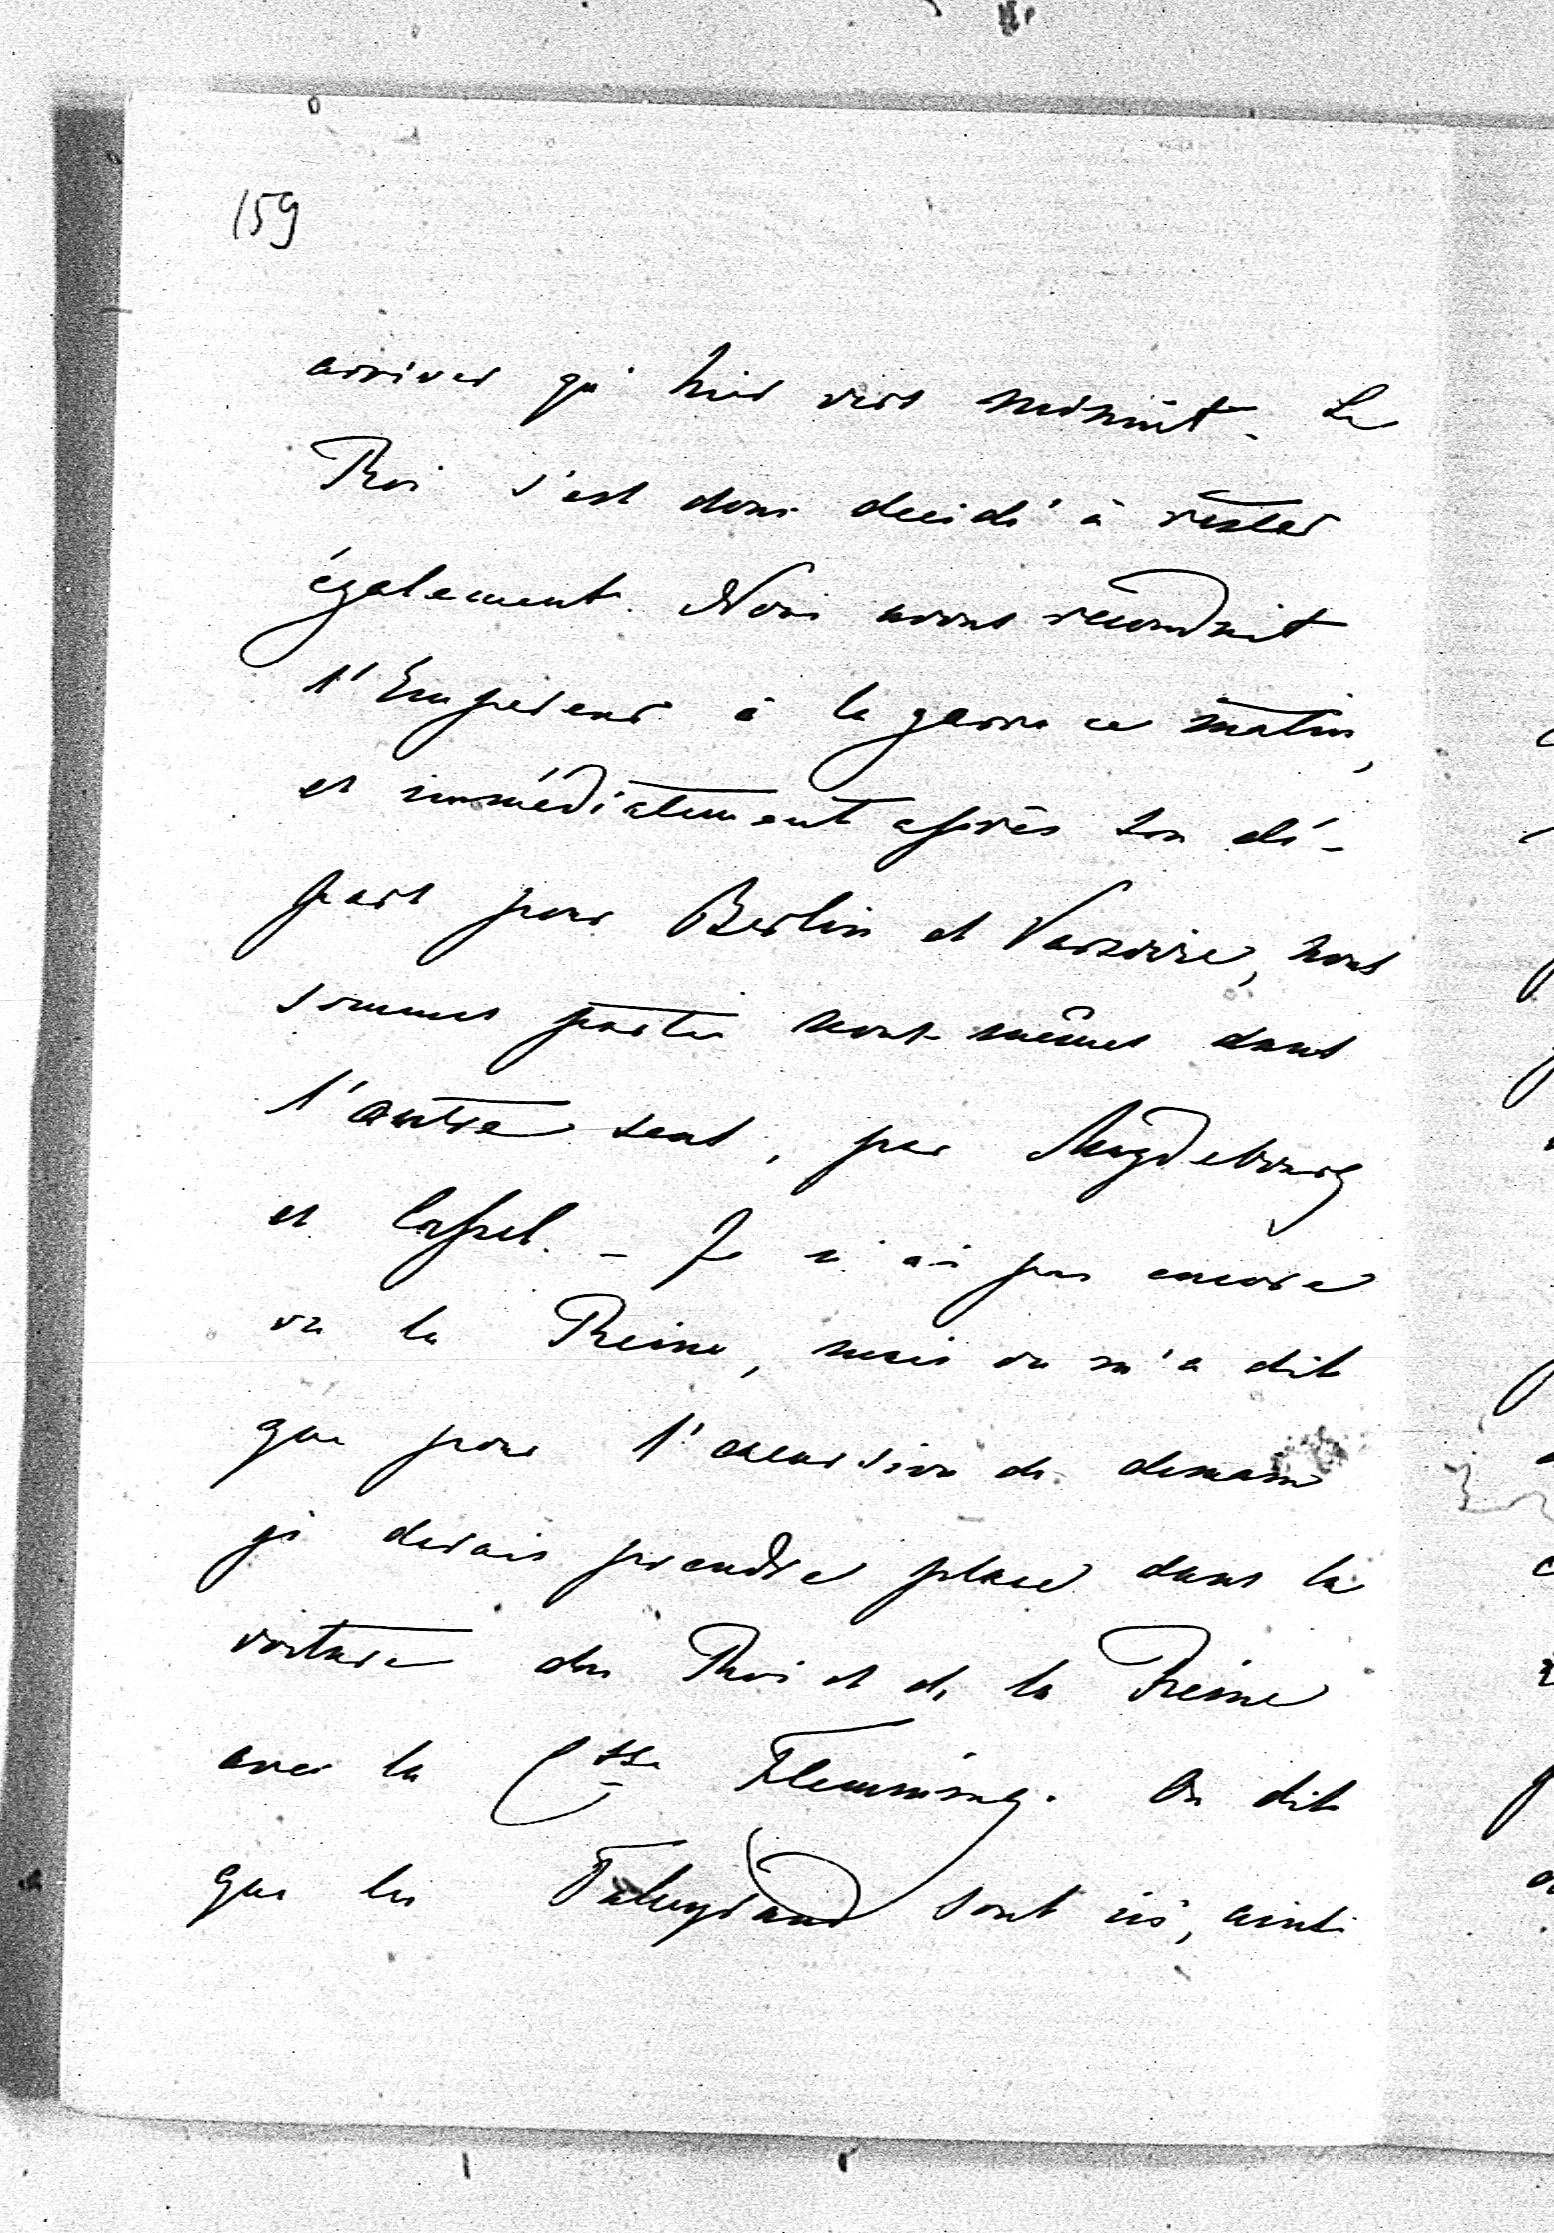 159
arriver qu'hier vers minuit. Le
Roi s'est donc decidé à rester
également. Nous avons reconduit
l'Empereur à la garre ce matin,
et immédiatement après son dé-
part pour Berlin et Varsovie, nous
sommes partis nous-mêmes dans
l'autre sens, par Magdebourg
et Cassel. – Je n'ai pas encore
vu la Reine, mais on m'a dit
que pour l'excursion de demain
je devais prendre place dans la
voiture du Roi et de la Reine
avec la Ctsse Flemming. On dit
que les Talleyrand sont ici, ainsi